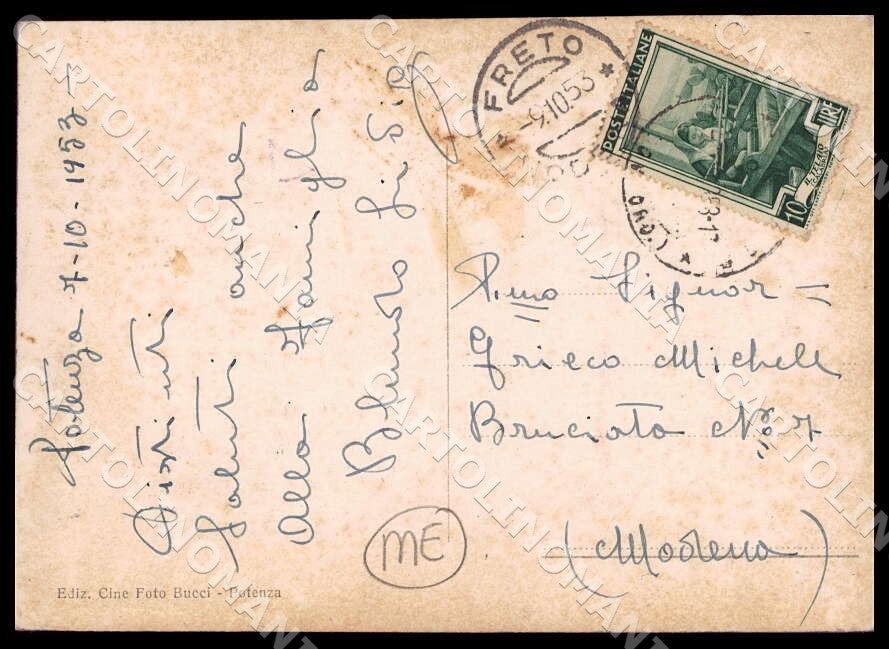 Potenza 7-10-1953-
Distinti
Saluti anche
Alla Famiglia
Ediz. Cine Foto Bucci - Potenza
ME
FRETO
-9.10.53
POSTE ITALIANE
10 LIRE
IL TELAIO
Signor
Grieco Michele
Bruciata No 7
(Modena)
CARTOLINOMANIA